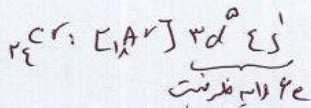 ₂₄Cr: [₁₈Ar] ۳d⁵ ۴s¹
۶e⁻ لایه ظرفیت